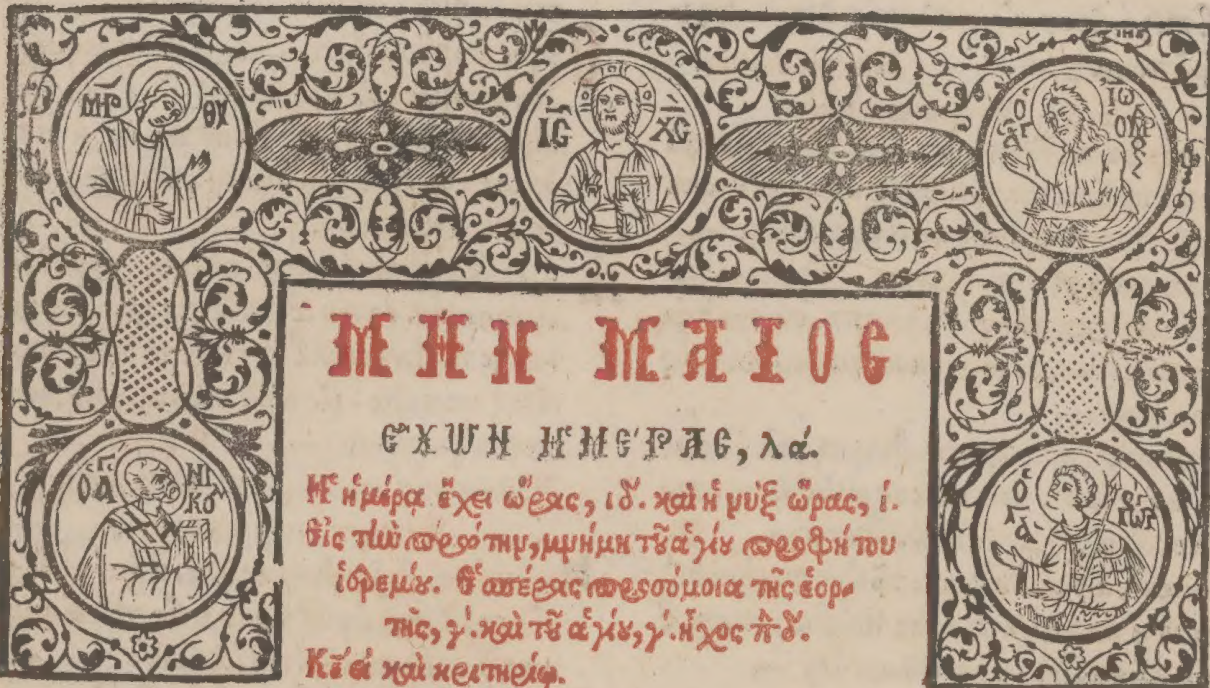 ΜΗΡ ΘΥ
ΙϹ ΧϹ
Ο ΑΓ ΙΩ Ο ΠΡ
Ο ΑΓ ΝΙΚΟ
Ο ΑΓ ΓΕΩΡ
ΜῊΝ ΜΑΪΟϹ
ἔχων ἡμέρας, λά.
Ἡ ἡμέρα ἔχει ὥρας, ιδ'. καὶ ἡ νὺξ ὥρας, ί.
Εἰς τὴν πρώτην, μνήμη τοῦ ἁγίου προφήτου
ἱερεμίου. Ἑσπέρας προσόμοια τῆς ἑορ-
τῆς, γ'. καὶ τοῦ ἁγίου, γ'. ἦχος πλ δ'.
Κε̄ εἰ καὶ κριτηρίῳ.